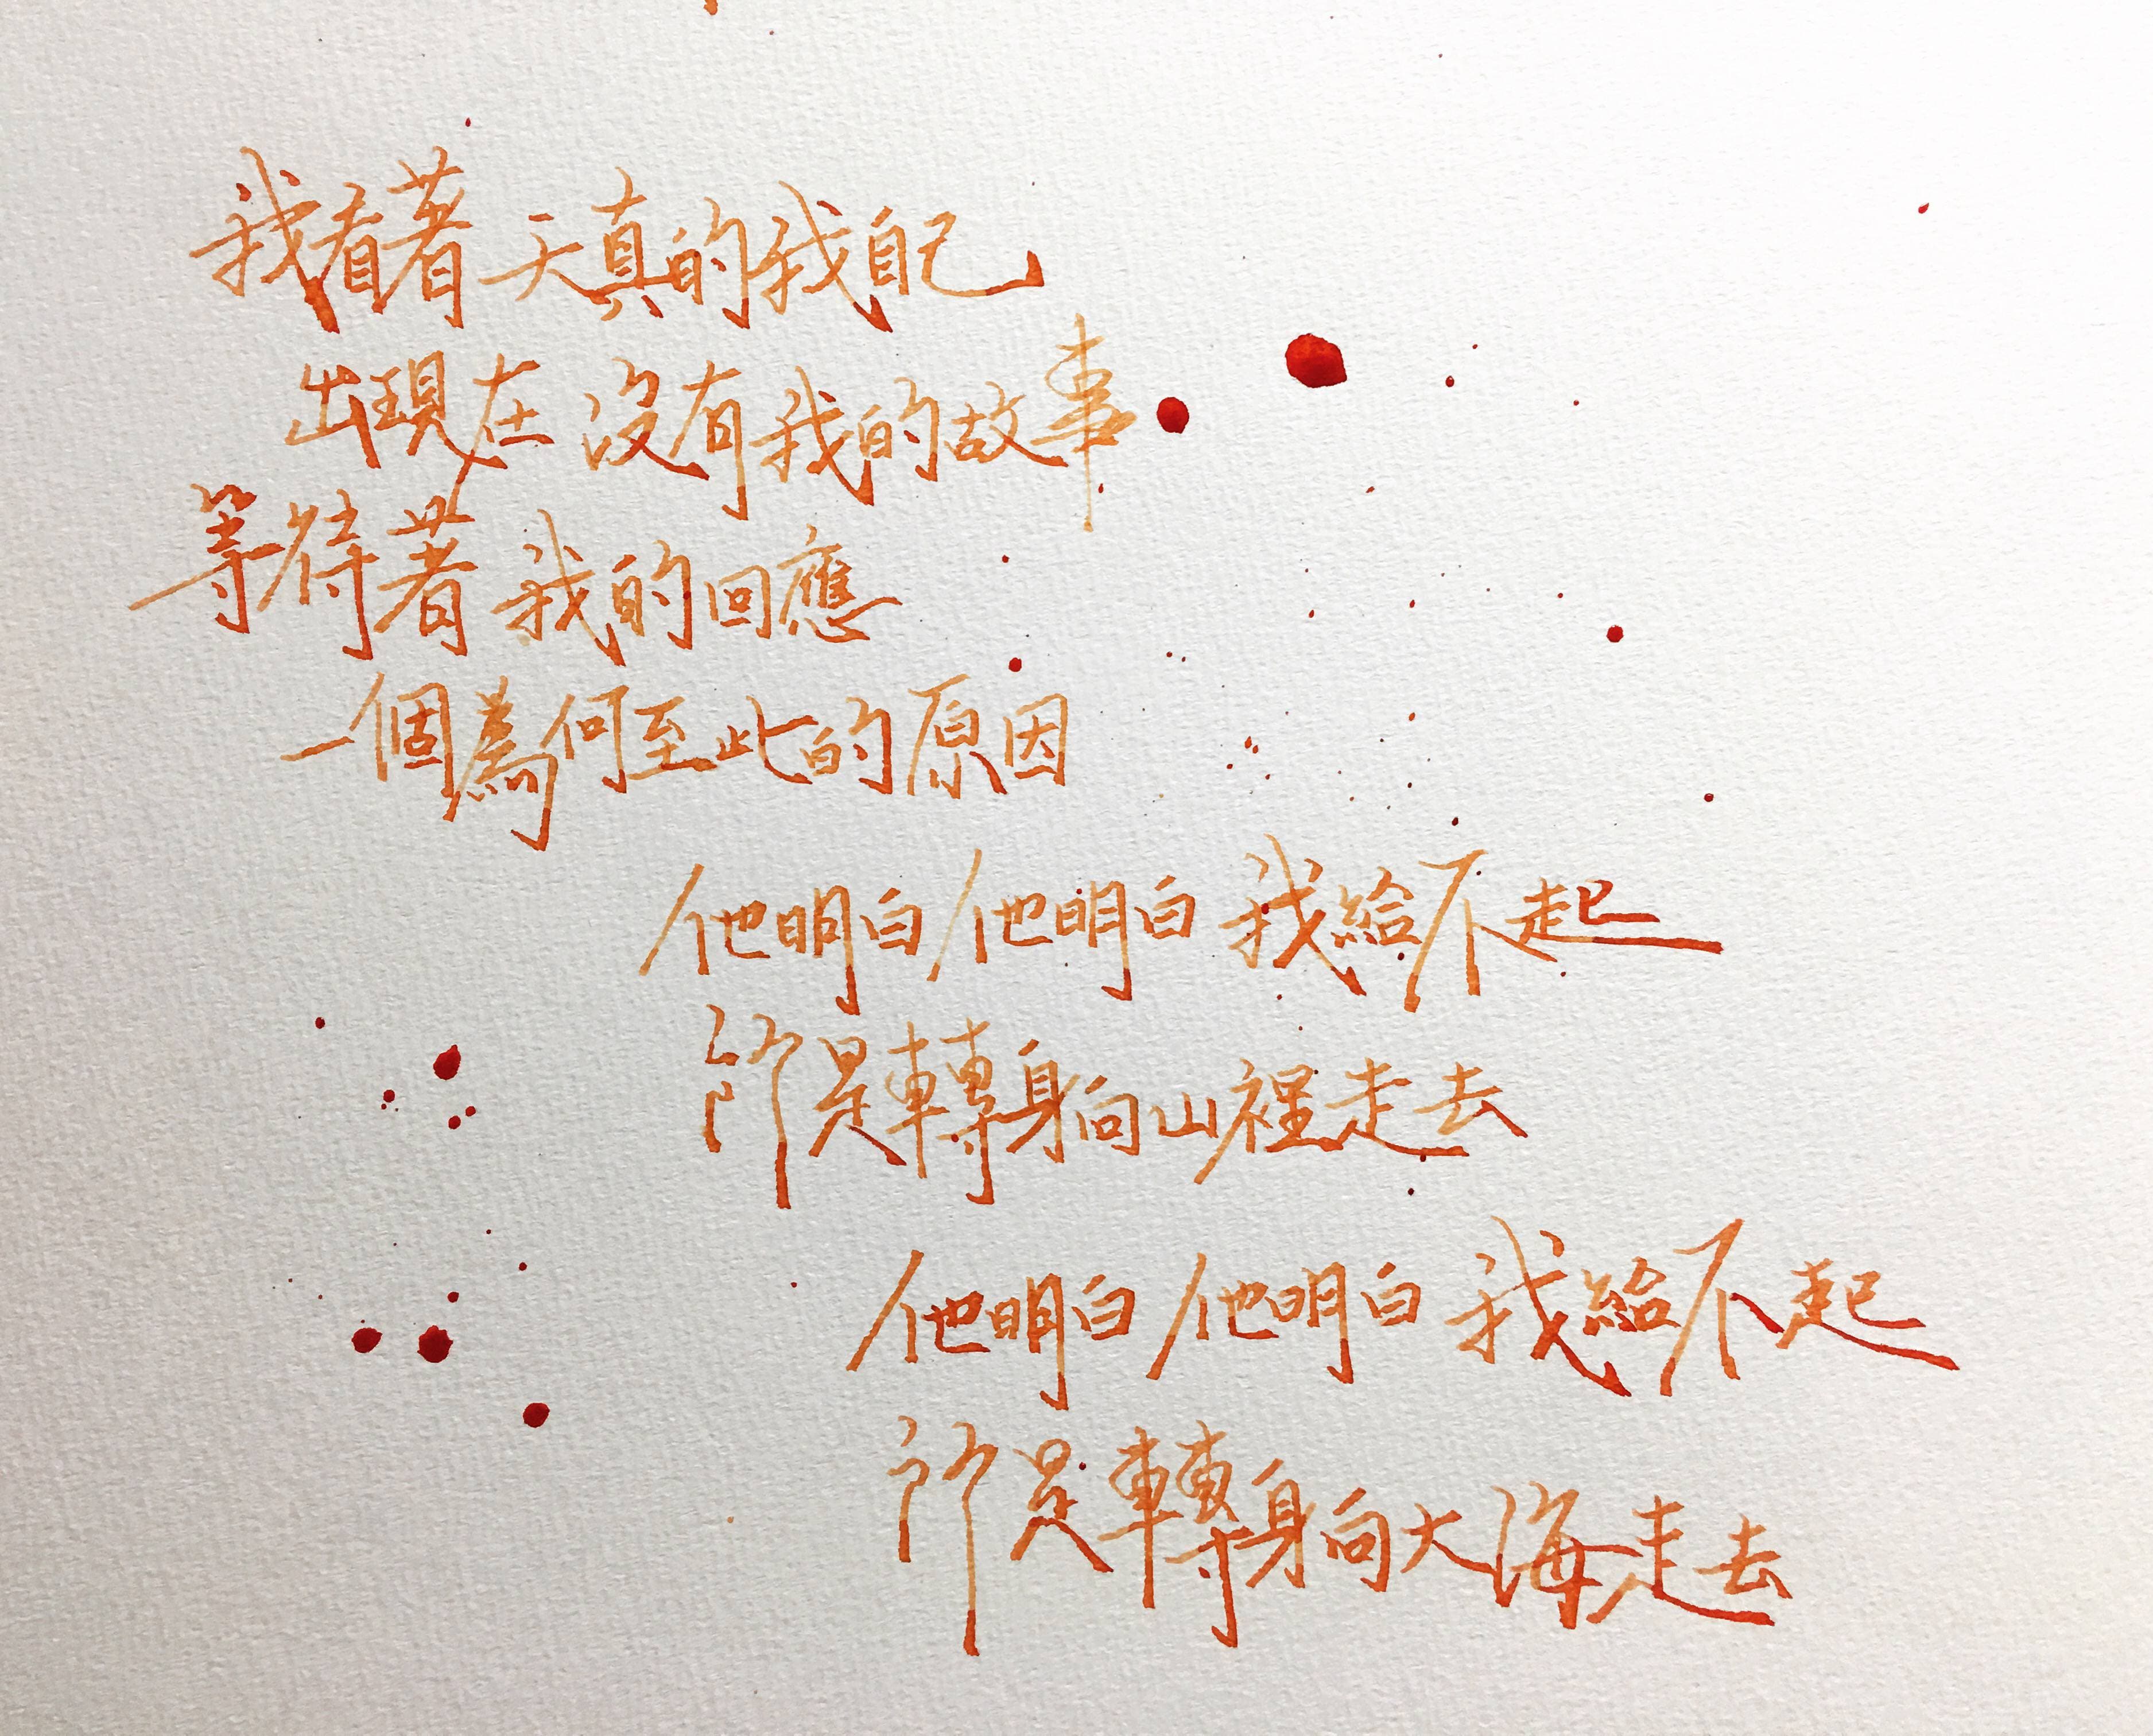 我看著 天真的我自己
出現在 沒有我的故事
等待著 我的回應
一個為何至此的原因
他明白 他明白 我給不起
於是轉身向山裡走去
他明白 他明白 我給不起
於是轉身向大海走去